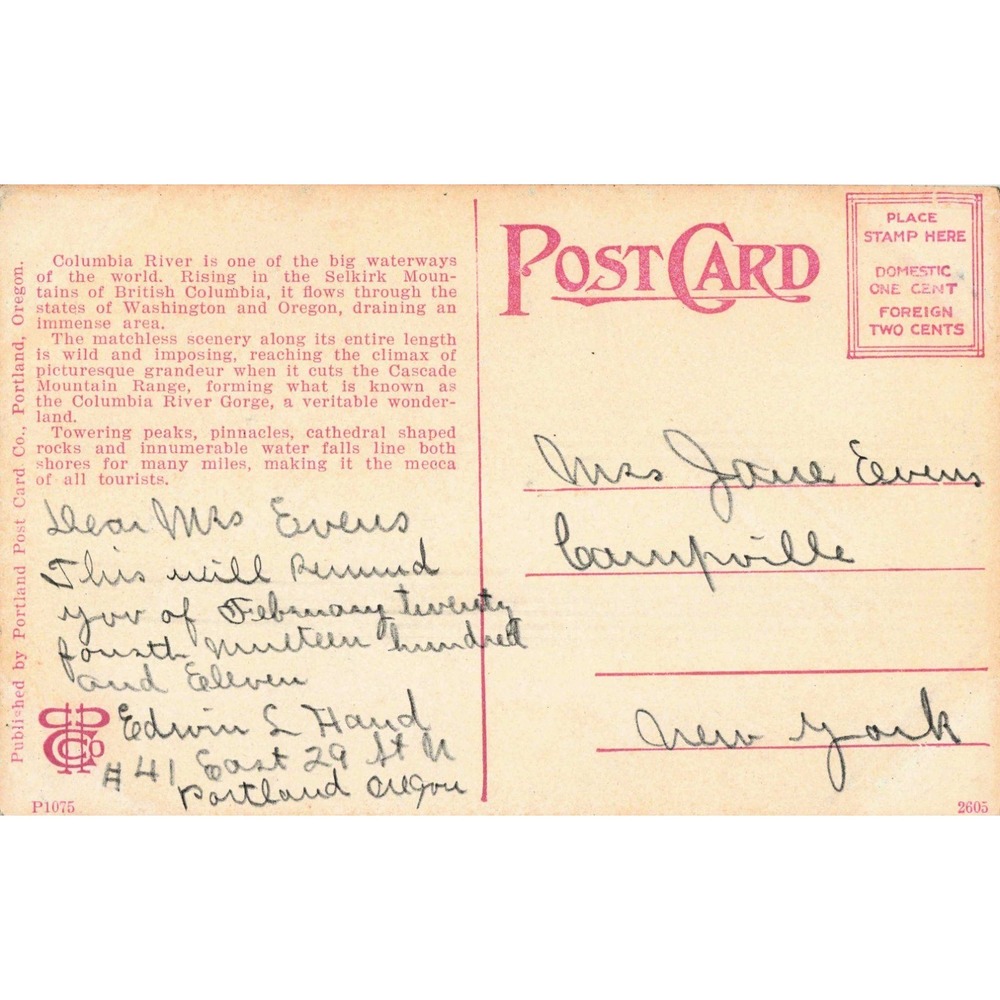 Columbia River is one of the big waterways
of the world. Rising in the Selkirk Moun-
tains of British Columbia, it flows through the
states of Washington and Oregon, draining an
immense area.
The matchless scenery along its entire length
is wild and imposing, reaching the climax of
picturesque grandeur when it cuts the Cascade
Mountain Range, forming what is known as
the Columbia River Gorge, a veritable wonder-
land.
Towering peaks, pinnacles, cathedral shaped
rocks and innumerable water falls line both
shores for many miles, making it the mecca
of all tourists.
Published by Portland Post Card Co., Portland, Oregon.
Dear Mrs Evens
This will remind
you of February twenty
fourth Nineteen hundred
and Eleven
Edwin L Hand
#41 East 29 St N
Portland Oregon
P1075
POST CARD
PLACE
STAMP HERE
DOMESTIC
ONE CENT
FOREIGN
TWO CENTS
Mrs Jane Evens
Campville
New York
2605